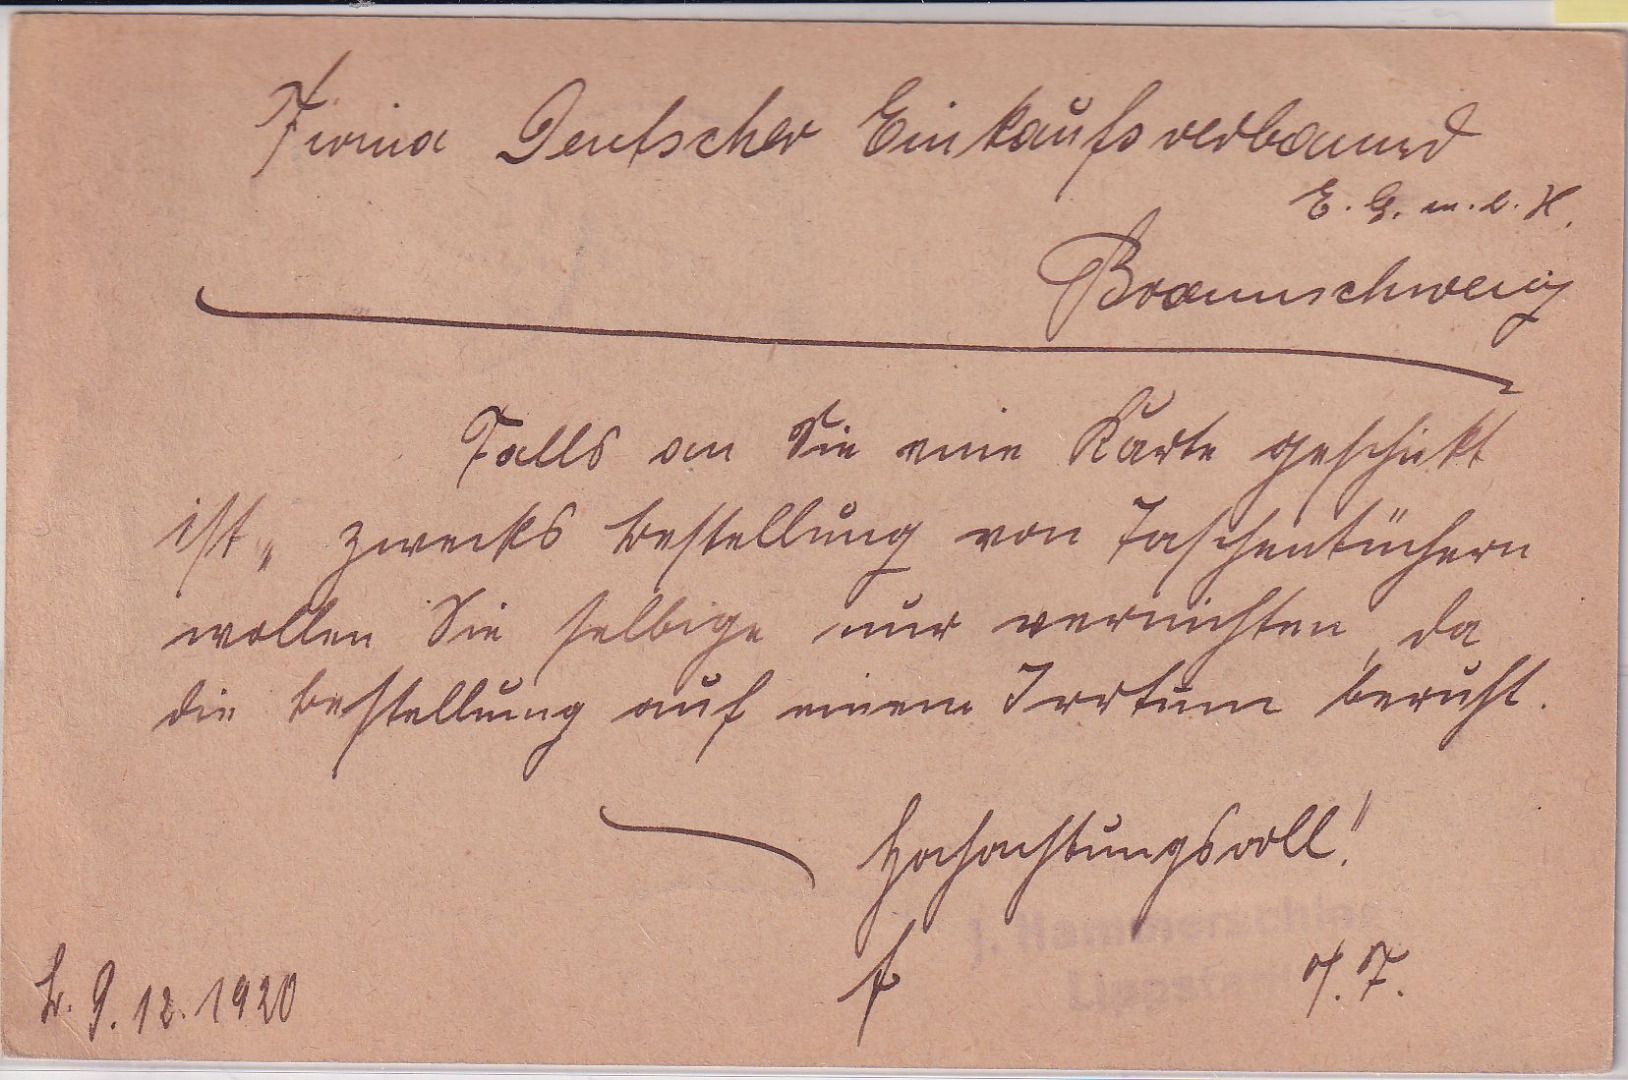 Firma Deutscher Einkaufsverband
E. G. m. b. H.
Braunschweig
Falls an Sie eine Karte geschickt
ist, zwecks Bestellung von Taschentüchern
wollen Sie selbige nur vernichten, da
die Bestellung auf einem Irrtum beruht.
Hochachtungsvoll!
J. Hammerschlag
Lippstadt
L. 9. 12. 1920